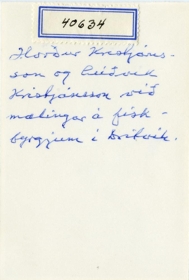 40634
Hörður Kristjáns-
son og Lúðvík
Kristjánsson við
mælingar á fisk-
byrgjum í Dritvík.